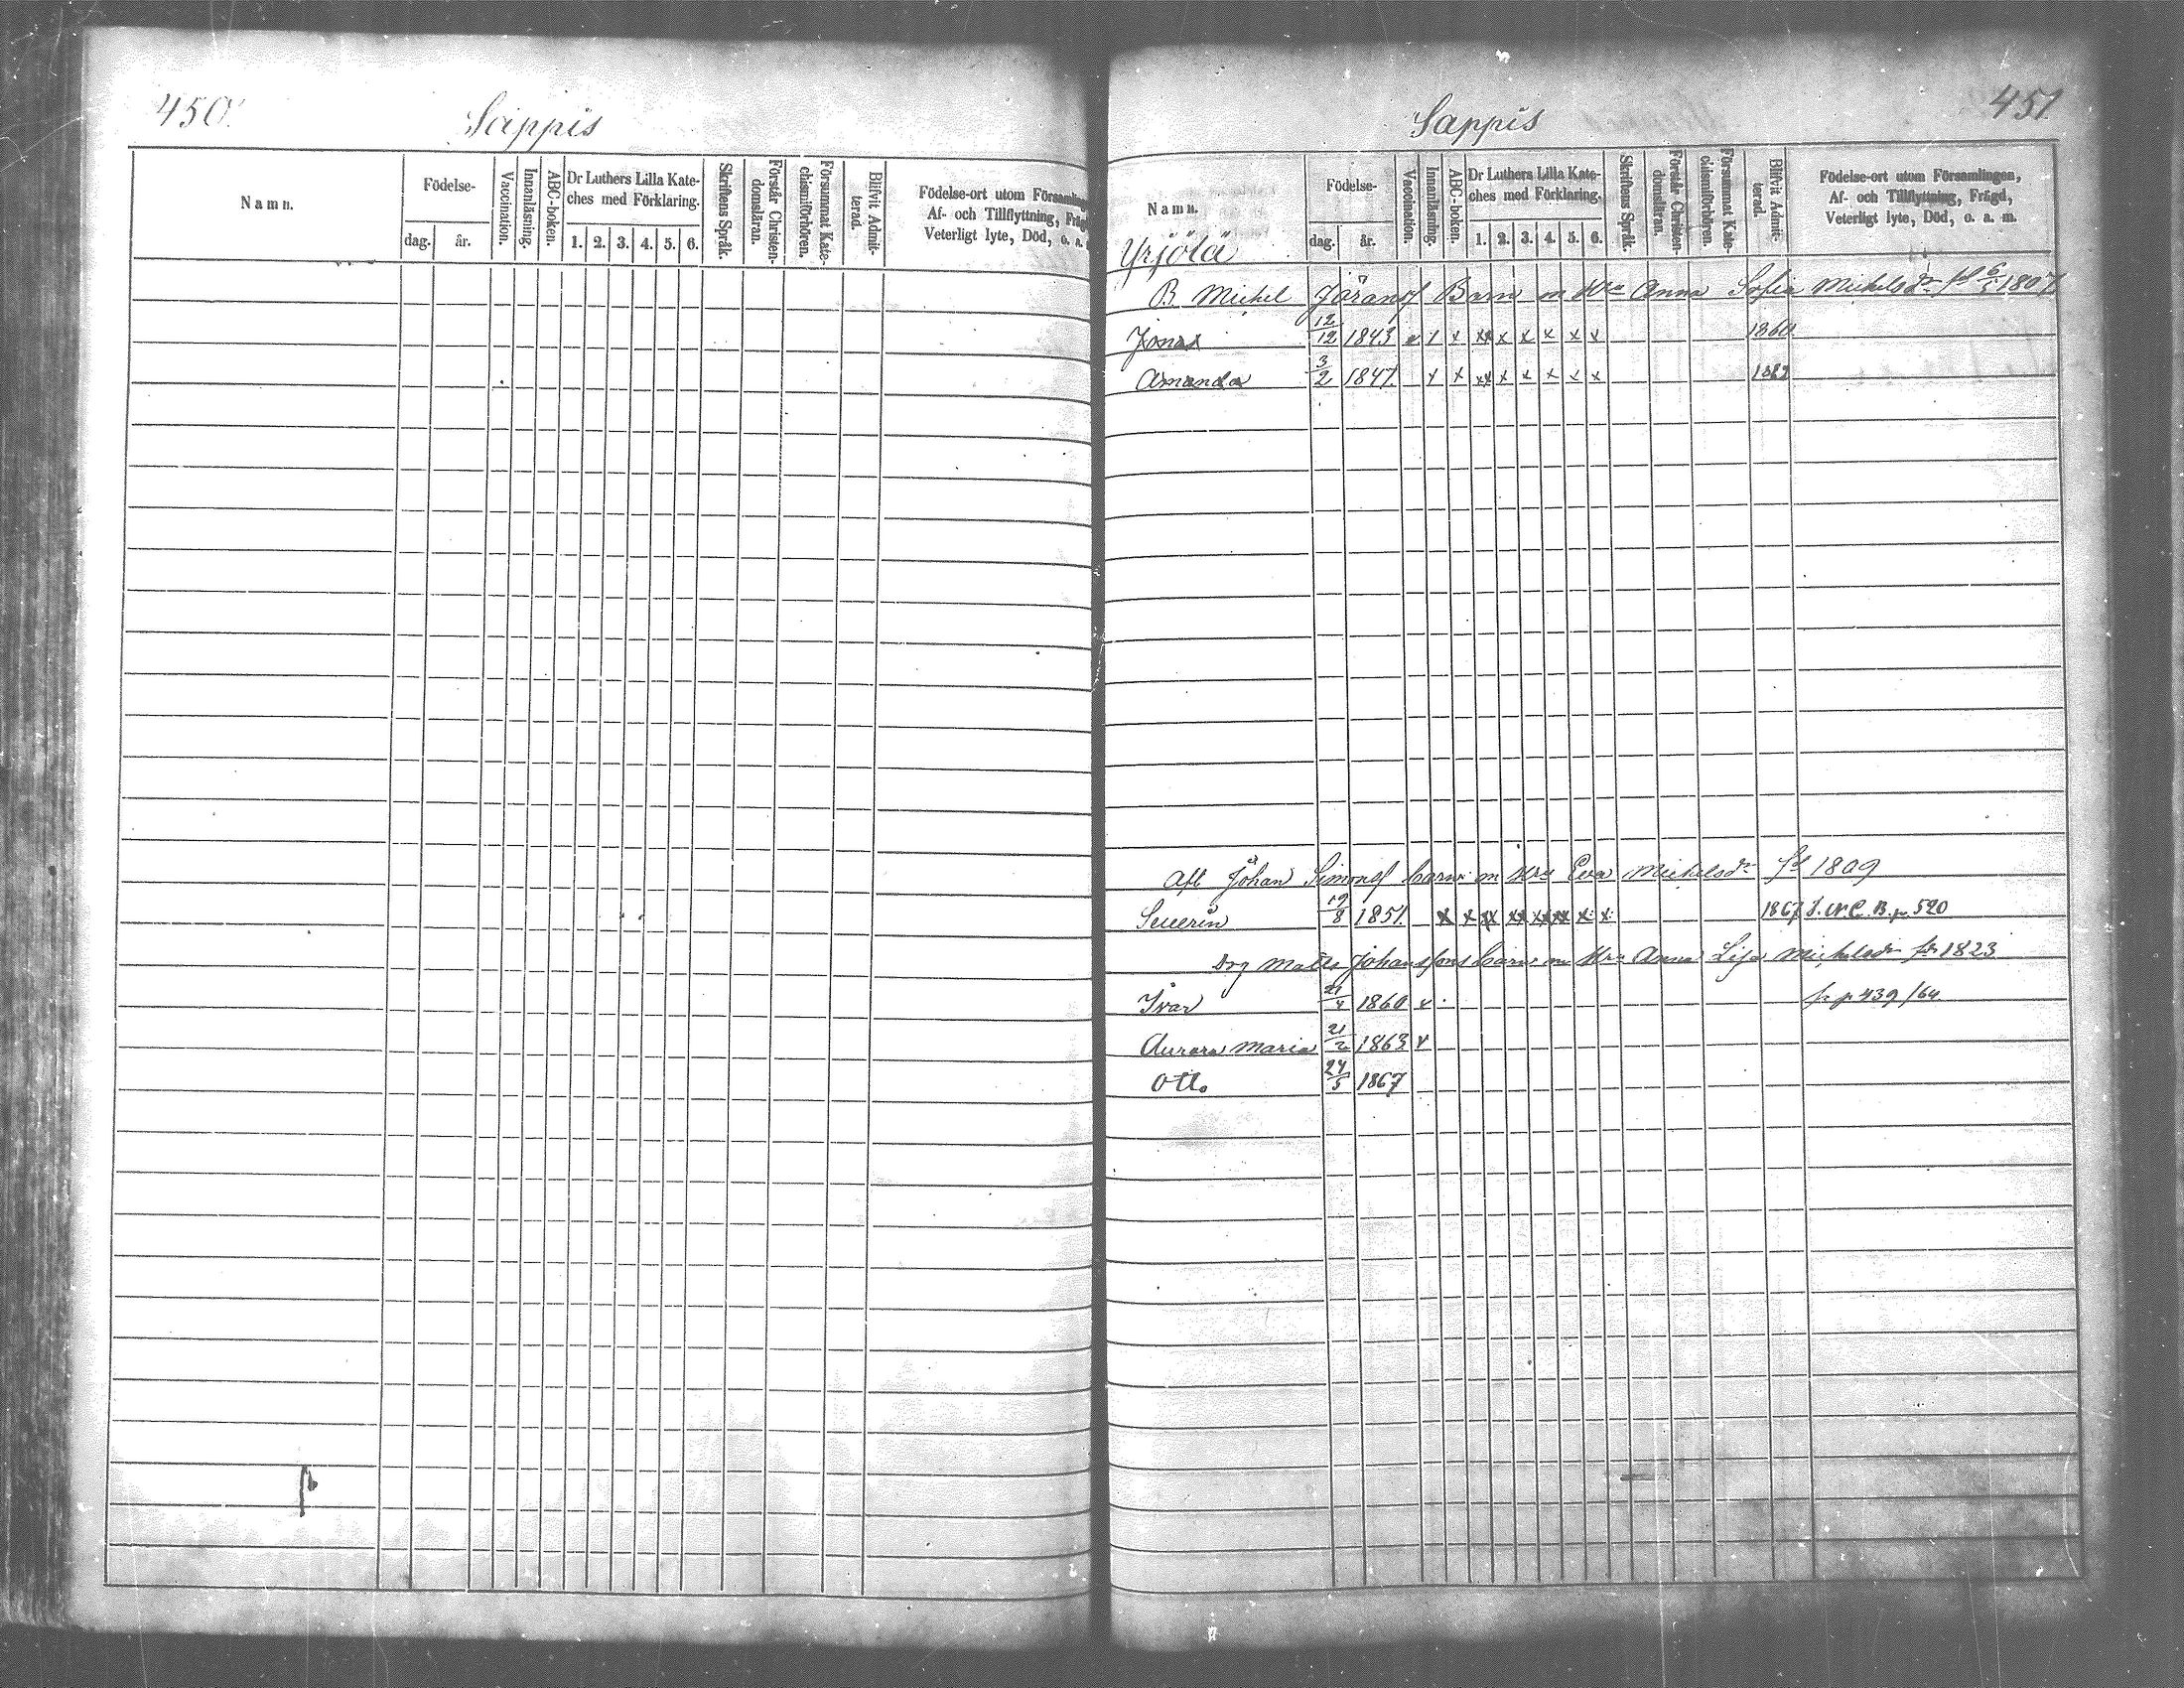 450.
Sappis
Namn.
Födelse-
dag.
år.
Vaccination.
Innanläsning.
ABC-boken.
Dr Luthers Lilla Kate-
ches med Förklaring.
1. 2. 3. 4. 5. 6.
Skriftens Språk.
Förstår Christen-
domsläran.
Försummat Kate-
chismiförhören.
Blifvit Admit-
terad.
Födelse-ort utom Församling
Af- och Tillflyttning, Fräg
Veterligt lyte, Död, o. a.
451
Sappis
Namn.
Födelse-
dag.
år.
Vaccination.
Innanläsning.
ABC-boken.
Dr Luthers Lilla Kate-
ches med Förklaring.
1. 2. 3. 4. 5. 6.
Skriftens Språk.
Förstår Christen-
domsläran.
Försummat Kate-
chismiförhören.
Blifvit Admit-
terad.
Födelse-ort utom Församlingen,
Af- och Tillflyttning, Frägd,
Veterligt lyte, Död, o. a. m.
Yrjölä
B. Michel Göransf Barn m Hru Anna Sofia Michelsdr 1807
Jonas 12/12 1843 x x xx x x x x x 1860
Amanda 3/2 1847 x x xx x x x x x
Aft Johan Simonsf barn m Hru Eva Michelsdr fd 1809
Severin 19/8 1851 x x xx xx xx xx x x 1867 p. 520
Matts Johanssons barn m Hru Anna Lisa Michelsdr 1823
Ivar 21/4 1860 v fr p 439/64
Aurora Maria 21/2 1863 v
Otto 24/5 1867